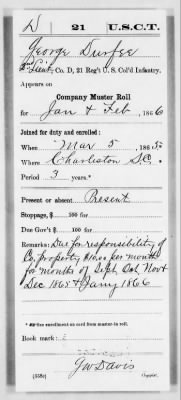 D 21 U.S.C.T.
George Durfee
2 Lieut, Co. D, 21 Reg't U. S. Col'd Infantry.
Appears on
Company Muster Roll
for Jan & Feb, 1866
Joined for duty and enrolled:
When Mar 5, 1865
Where Charleston S.C.
Period 3 years.*
Present or absent Present
Stoppage, $ 100 for
Due Gov't $ 100 for
Remarks: Due for responsibility of
Co. property $10.00 per month
for months of Sept Oct Nov &
Dec 1865 & Jany 1866
* See enrollment on card from muster-in roll.
Book mark:
G W Davis
(358c) Copyist.